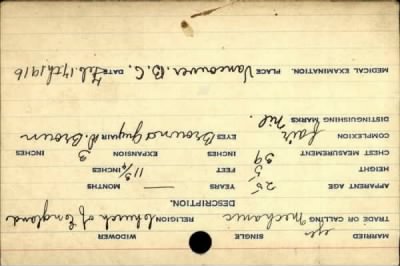 MARRIED yes SINGLE WIDOWER
TRADE OR CALLING Mechanic RELIGION Church of England
DESCRIPTION.
APPARENT AGE 25 YEARS — MONTHS
HEIGHT 5 FEET 11 3/4 INCHES
CHEST MEASUREMENT 39 INCHES EXPANSION 3 INCHES
COMPLEXION fair EYES Brown HAIR D. Brown
DISTINGUISHING MARKS Nil.
MEDICAL EXAMINATION. PLACE Vancouver. B. C. DATE Feb. 17th 1916